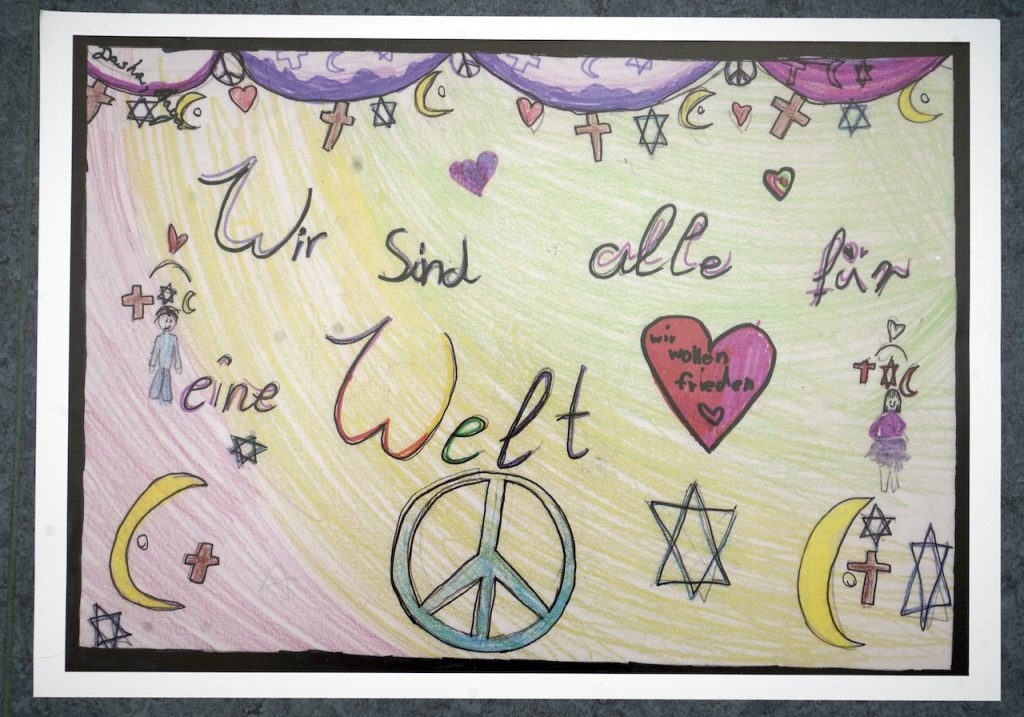 Dasha,
Wir sind alle für
eine Welt
wir
wollen
frieden